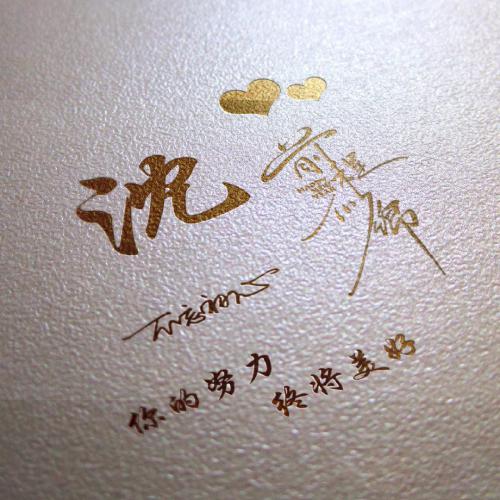 沈
前程似锦
不忘初心
你的努力
终将美好